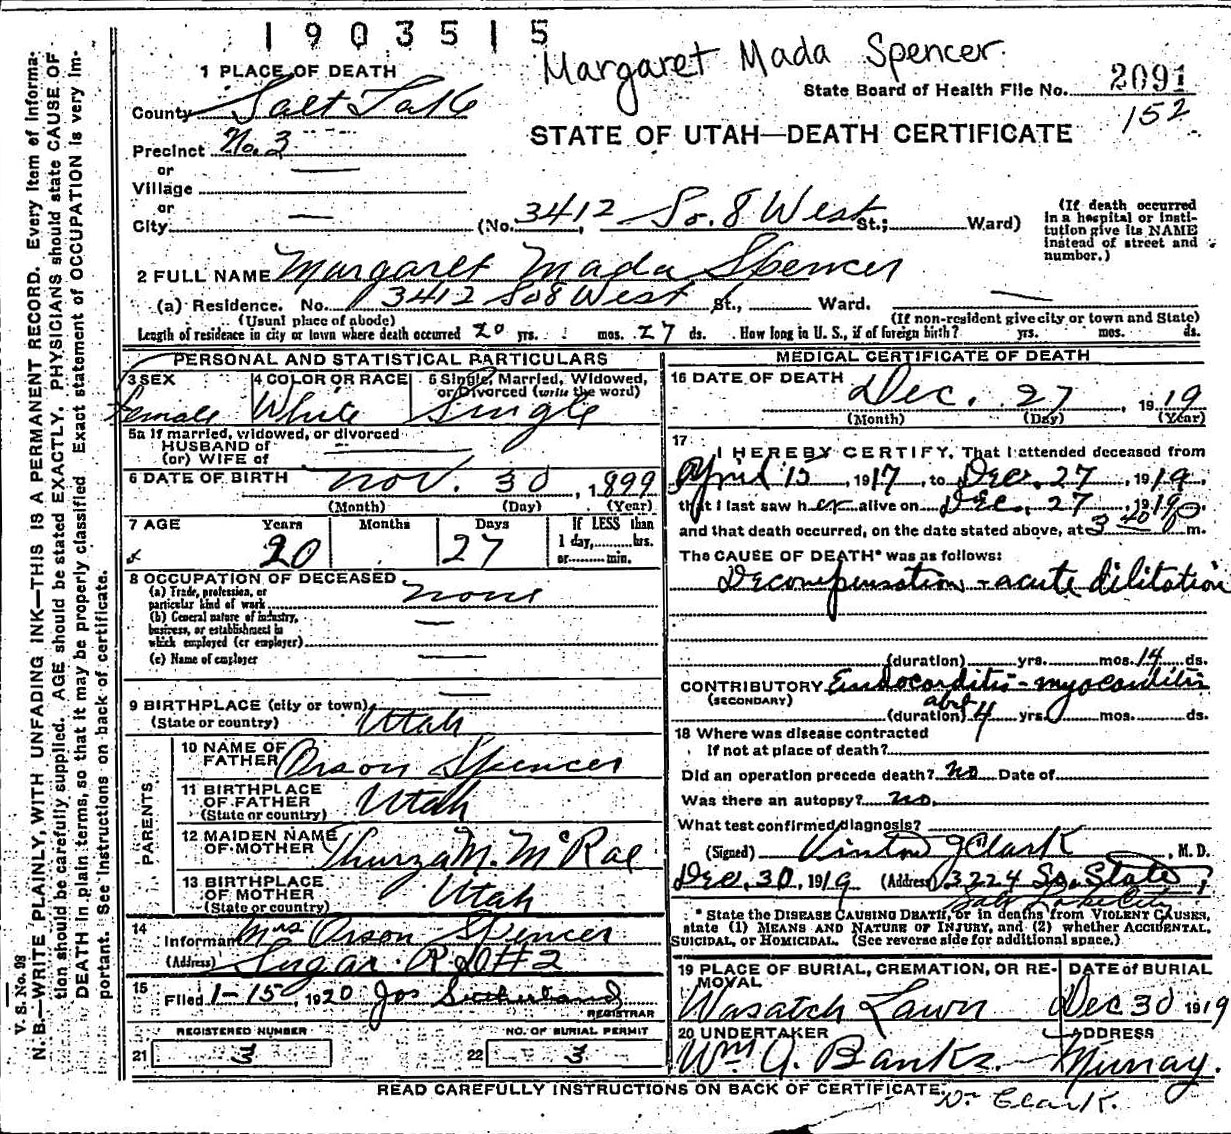 1903515
Margaret Mada Spencer.
1 PLACE OF DEATH
State Board of Health File No. 2091
152
County Salt Lake
STATE OF UTAH—DEATH CERTIFICATE
Precinct No. 3
or
Village
or
City (No. 3412 So. 8 West St.; Ward)
(If death occurred in a hospital or insti-
tution give its NAME
instead of street and
number.)
2 FULL NAME Margaret Mada Spencer
(a) Residence. No. 3412 So 8 West St., Ward.
(Usual place of abode) (If non-resident give city or town and State)
Length of residence in city or town where death occurred 20 yrs. mos. 27 ds. How long in U. S., if of foreign birth? yrs. mos. ds.
PERSONAL AND STATISTICAL PARTICULARS
3 SEX
Female
4 COLOR OR RACE
White
5 Single, Married, Widowed,
or Divorced (write the word)
Single
5a If married, widowed, or divorced
HUSBAND of
(or) WIFE of
6 DATE OF BIRTH Nov. 30, 1899
(Month) (Day) (Year)
7 AGE Years Months Days
20 27
If LESS than
1 day, hrs.
or min.
8 OCCUPATION OF DECEASED
(a) Trade, profession, or
particular kind of work none
(b) General nature of industry,
business, or establishment in
which employed (or employer)
(c) Name of employer
9 BIRTHPLACE (city or town)
(State or country) Utah
PARENTS
10 NAME OF
FATHER Orson Spencer
11 BIRTHPLACE
OF FATHER Utah
(State or country)
12 MAIDEN NAME
OF MOTHER Thurza M. McRae
13 BIRTHPLACE
OF MOTHER Utah
(State or country)
14
Informant Mrs Orson Spencer
(Address) Sugar R.D #2
15
Filed 1-15, 1920 Jos Sutherland
REGISTRAR
REGISTERED NUMBER NO. OF BURIAL PERMIT
21 3 22 3
MEDICAL CERTIFICATE OF DEATH
16 DATE OF DEATH Dec. 27, 1919
(Month) (Day) (Year)
17
I HEREBY CERTIFY, That I attended deceased from
April 15, 1917, to Dec. 27, 1919,
that I last saw her alive on Dec. 27, 1919
and that death occurred, on the date stated above, at 3 40 P m.
The CAUSE OF DEATH* was as follows:
Decompensation - acute dilitation
(duration) yrs. mos. 14 ds.
CONTRIBUTORY Endocarditis - myocarditis
(SECONDARY)
abt
(duration) 4 yrs. mos. ds.
18 Where was disease contracted
If not at place of death?
Did an operation precede death? No Date of
Was there an autopsy? no.
What test confirmed diagnosis?
(Signed) Vinton J Clark, M. D.
Dec. 30, 1919 (Address) 3224 So. State,
Salt Lake City
* State the DISEASE CAUSING DEATH, or in deaths from VIOLENT CAUSES,
state (1) MEANS AND NATURE OF INJURY, and (2) whether ACCIDENTAL,
SUICIDAL, or HOMICIDAL. (See reverse side for additional space.)
19 PLACE OF BURIAL, CREMATION, OR RE-
MOVAL
Wasatch Lawn
DATE of BURIAL
Dec 30 1919
20 UNDERTAKER
Wm O. Banks
ADDRESS
Murray.
READ CAREFULLY INSTRUCTIONS ON BACK OF CERTIFICATE.
Dr Clark.
V. S. No. 98
N. B.—WRITE PLAINLY, WITH UNFADING INK—THIS IS A PERMANENT RECORD. Every item of Informa-
tion should be carefully supplied. AGE should be stated EXACTLY. PHYSICIANS should state CAUSE OF
DEATH in plain terms, so that it may be properly classified. Exact statement of OCCUPATION is very im-
portant. See instructions on back of certificate.